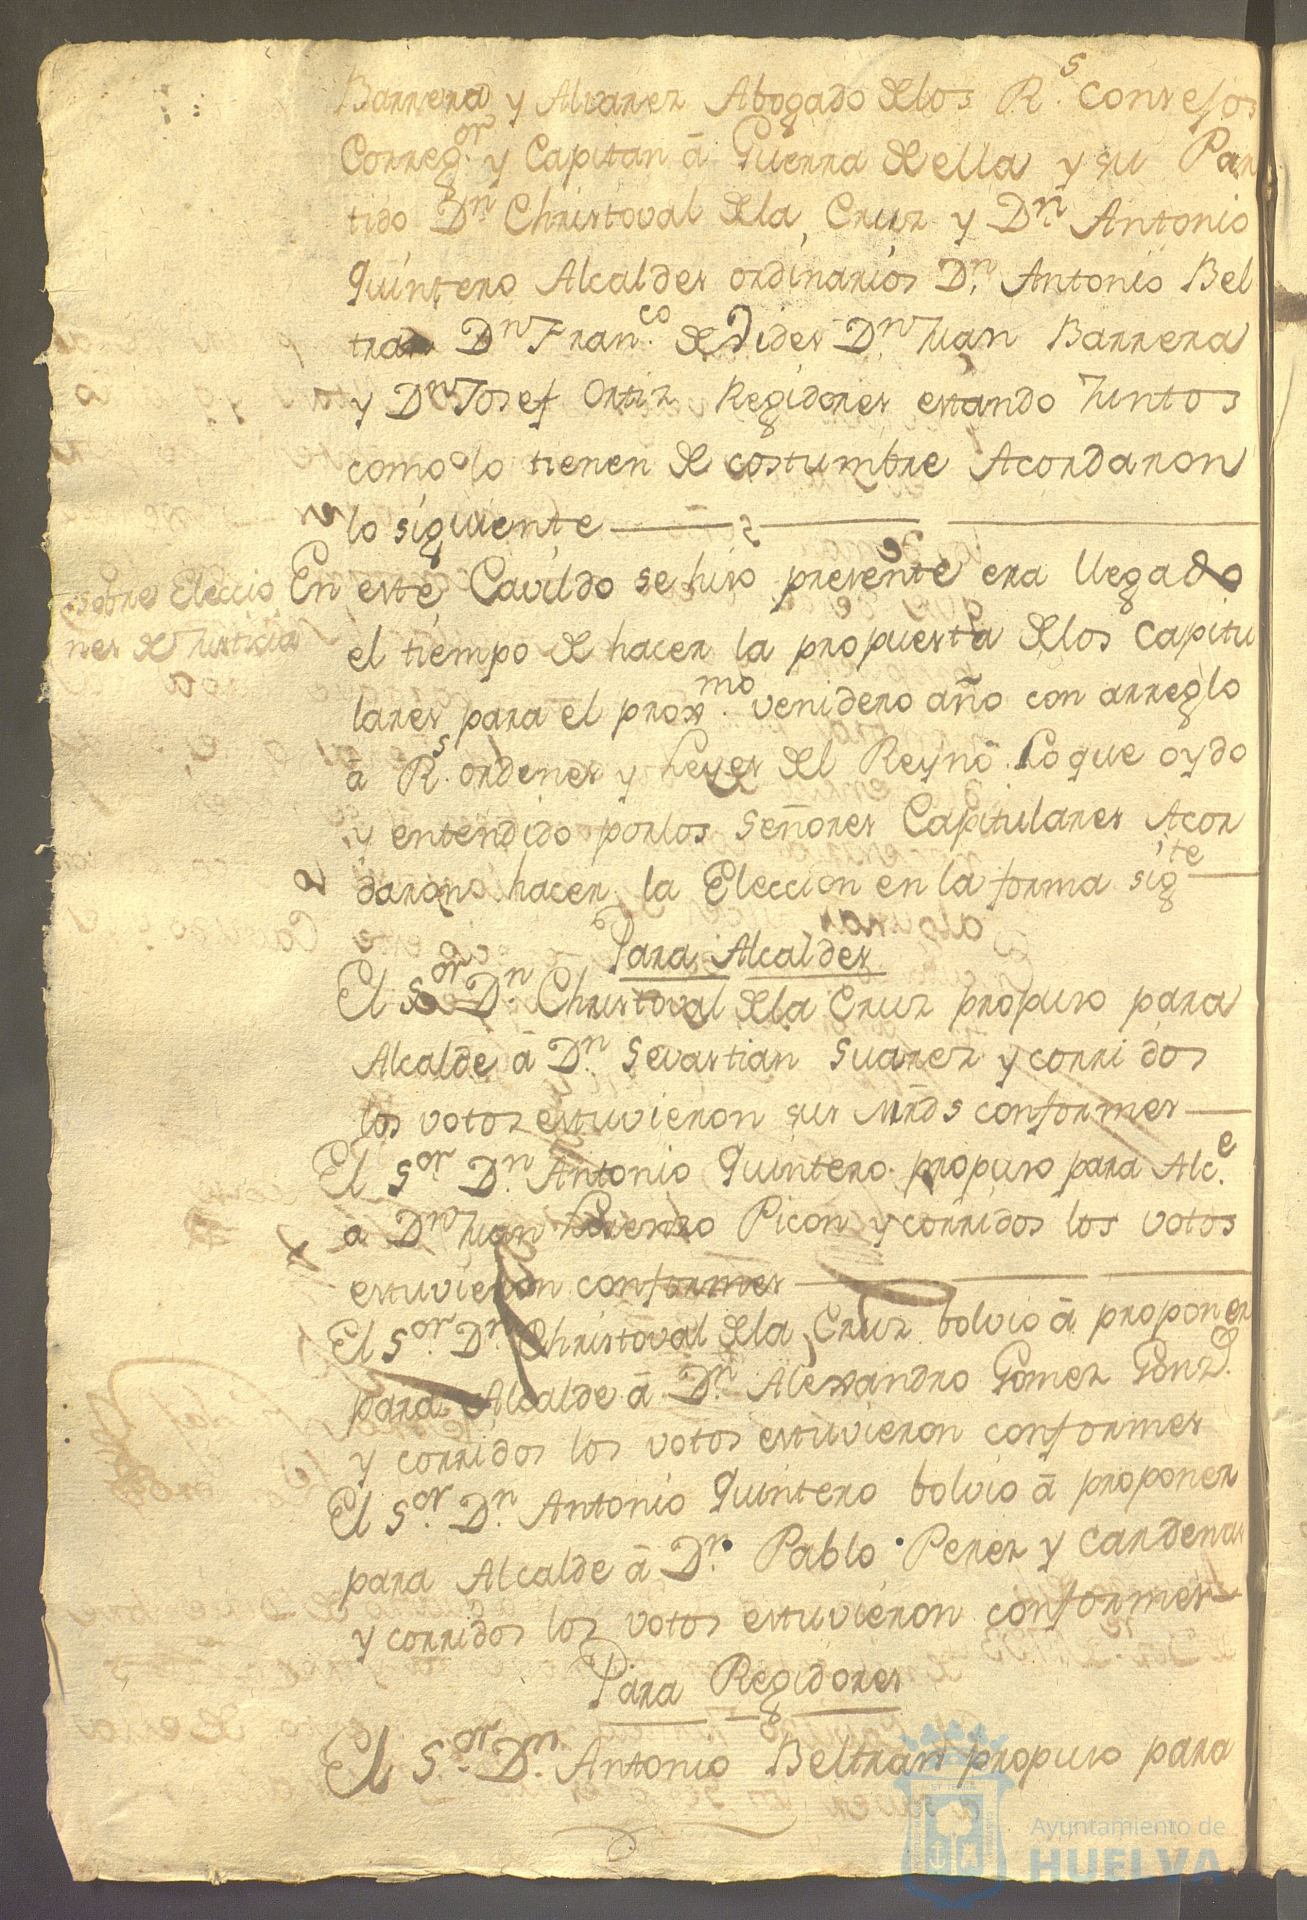 Barrera y Alvarez Abogado de los R.s Consejos
Correg.or y Capitan â Guerra de ella y su Par
tido D.n Christoval de la Cruz y D.n Antonio
Quintero Alcaldes ordinarios D.n Antonio Bel
tran D.n Fran.co de Vides D.n Juan Barrera
y D.n Josef Ortiz Regidores estando Juntos
como lo tienen de costumbre Acordaron
lo siguiente
sobre Eleccio
nes de Justicias
En este Cavildo se hiso presente era llegado
el tiempo de hacer la propuesta de los Capitu
lares para el prox.mo venidero año con arreglo
â R.s ordenes y Leyes del Reyno Lo que oydo
y entendido por los Señores Capitulares Acor
daron hacer la Eleccion en la forma sig.te
Para Alcaldes
El S.or D.n Christoval de la Cruz propuso para
Alcalde â D.n Sevastian Suarez y corridos
los votos estuvieron sus Mrds conformes
El S.or D.n Antonio Quintero propuso para Alc.e
â D.n Juan Lorenzo Picon y corridos los votos
estuvieron conformes
El S.or D.n Christoval de la Cruz bolvio â proponer
para Alcalde â D.n Alexandro Gomez Gonz.
y corridos los votos estuvieron conformes
El S.or D.n Antonio Quintero bolvio â proponer
para Alcalde â D.n Pablo Perez y Cardenas
y corridos los votos estuvieron conformes
Para Regidores
El S.or D.n Antonio Beltran propuso para
Ayuntamiento de
HUELVA